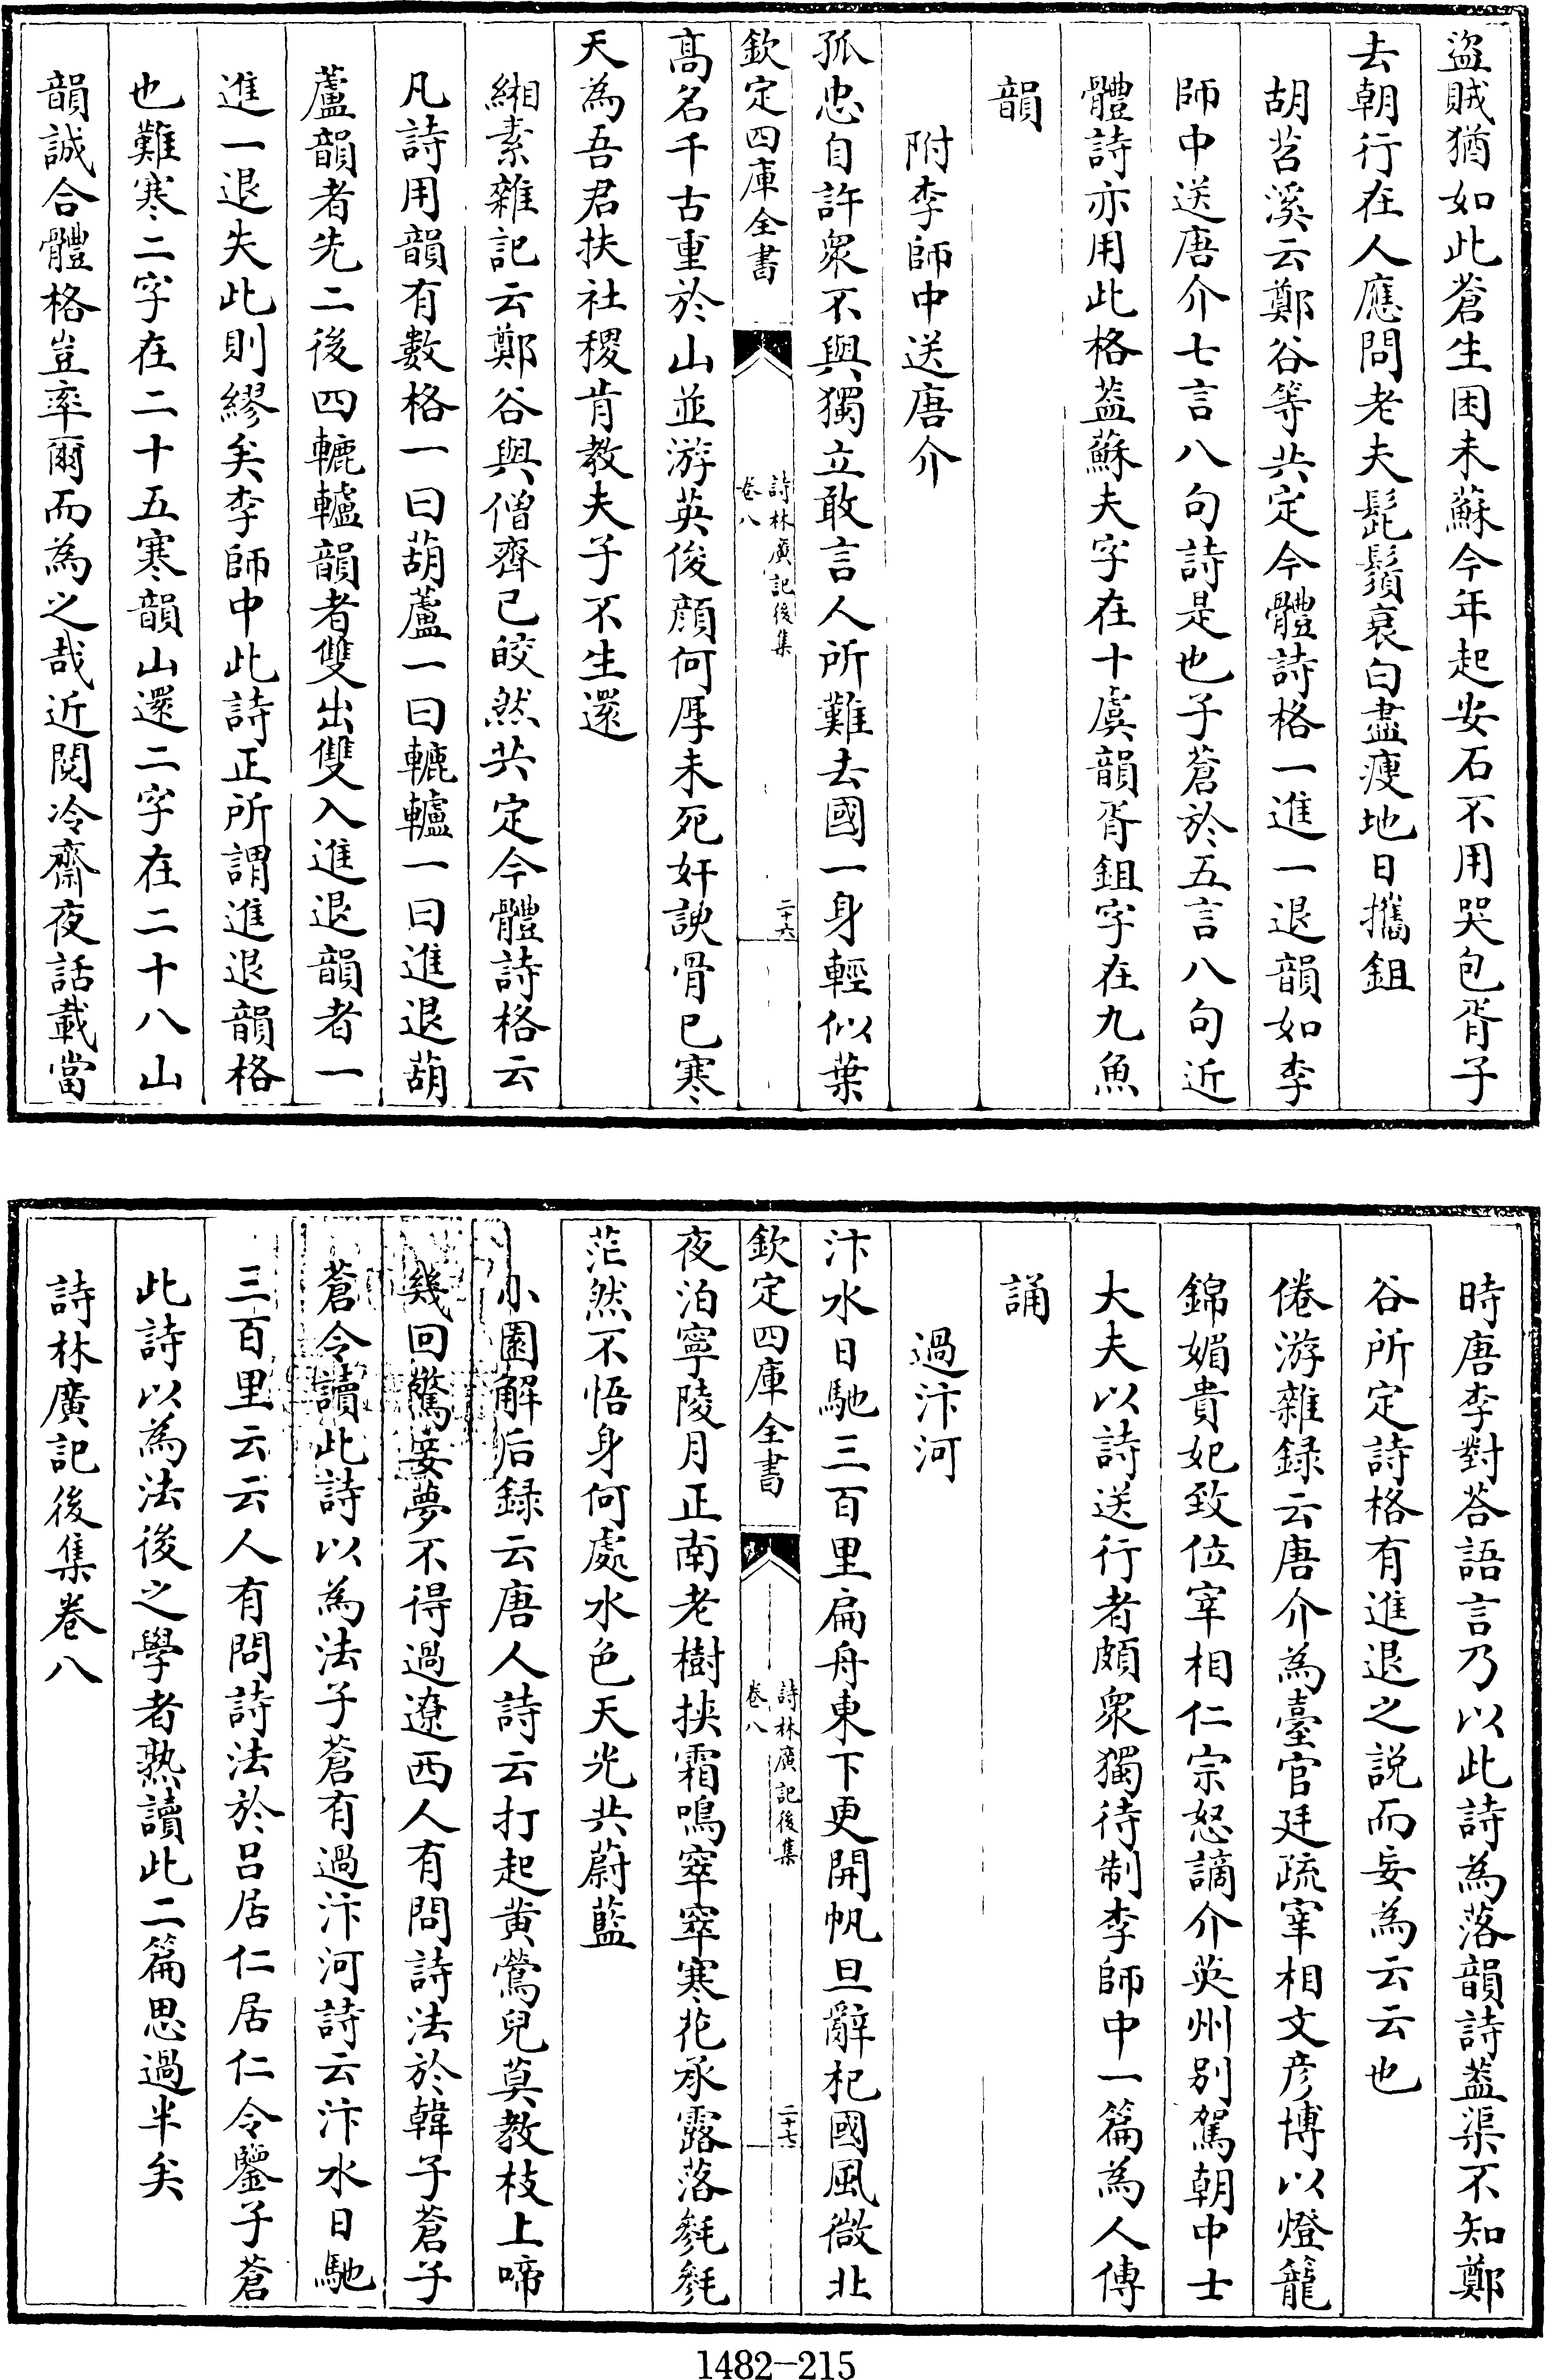 盜賊猶如此蒼生困未蘇今年起安石不用哭包胥子
去朝行在人應問老夫髭鬚衰白盡瘦地日攜鉏
胡苕溪云鄭谷等共定今體詩格一進一退韻如李
師中送唐介七言八句詩是也子蒼於五言八句近
體詩亦用此格葢蘇夫字在十虞韻胥鉏字在九魚
韻
附李師中送唐介
孤忠自許衆不與獨立敢言人所難去國一身輕似葉
欽定四庫全書
詩林廣記後集
卷八
二十六
髙名千古重於山並游英俊顔何厚未死奸諛骨已寒
天為吾君扶社稷肯教夫子不生還
緗素雜記云鄭谷與僧齊己皎然共定今體詩格云
凡詩用韻有數格一曰葫蘆一曰轆轤一曰進退葫
蘆韻者先二後四轆轤韻者雙出雙入進退韻者一
進一退失此則繆矣李師中此詩正所謂進退韻格
也難寒二字在二十五寒韻山還二字在二十八山
韻誠合體格豈率爾而為之哉近閱冷齋夜話載當
時唐李對荅語言乃以此詩為落韻詩葢渠不知鄭
谷所定詩格有進退之説而妄為云云也
倦游雜録云唐介為臺官廷疏宰相文彦博以燈籠
錦媚貴妃致位宰相仁宗怒謫介英州别駕朝中士
大夫以詩送行者頗衆獨待制李師中一篇為人傳
誦
過汴河
汴水日馳三百里扁舟東下更開帆旦辭杞國風微北
欽定四庫全書
詩林廣記後集
卷八
二十七
夜泊寧陵月正南老樹挾霜鳴窣窣寒花承露落毿毿
茫然不悟身何處水色天光共蔚藍
小園解后録云唐人詩云打起黄鶯兒莫教枝上啼
幾回驚妾夢不得過遼西人有問詩法於韓子蒼子
蒼令讀此詩以為法子蒼有過汴河詩云汴水日馳
三百里云云人有問詩法於吕居仁居仁令鑒子蒼
此詩以為法後之學者熟讀此二篇思過半矣
詩林廣記後集卷八
1482-215